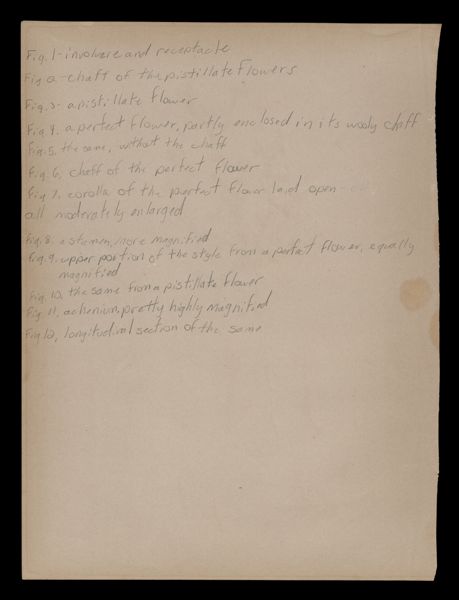 Fig. 1 - involucre and receptacle
Fig 2. - chaff of the pistillate flowers
Fig. 3 - a pistillate flower
Fig. 4. a perfect flower, partly enclosed in its wooly chaff
Fig. 5. the same, without the chaff
Fig. 6. chaff of the perfect flower
Fig. 7. corolla of the perfect flower laid open -
all moderately enlarged
Fig. 8. a stamen, more magnified
Fig. 9. upper portion of the style from a perfect flower, equally
magnified
Fig. 10. the same from a pistillate flower
Fig 11. achenium, pretty highly magnified
Fig 12, longitudinal section of the same